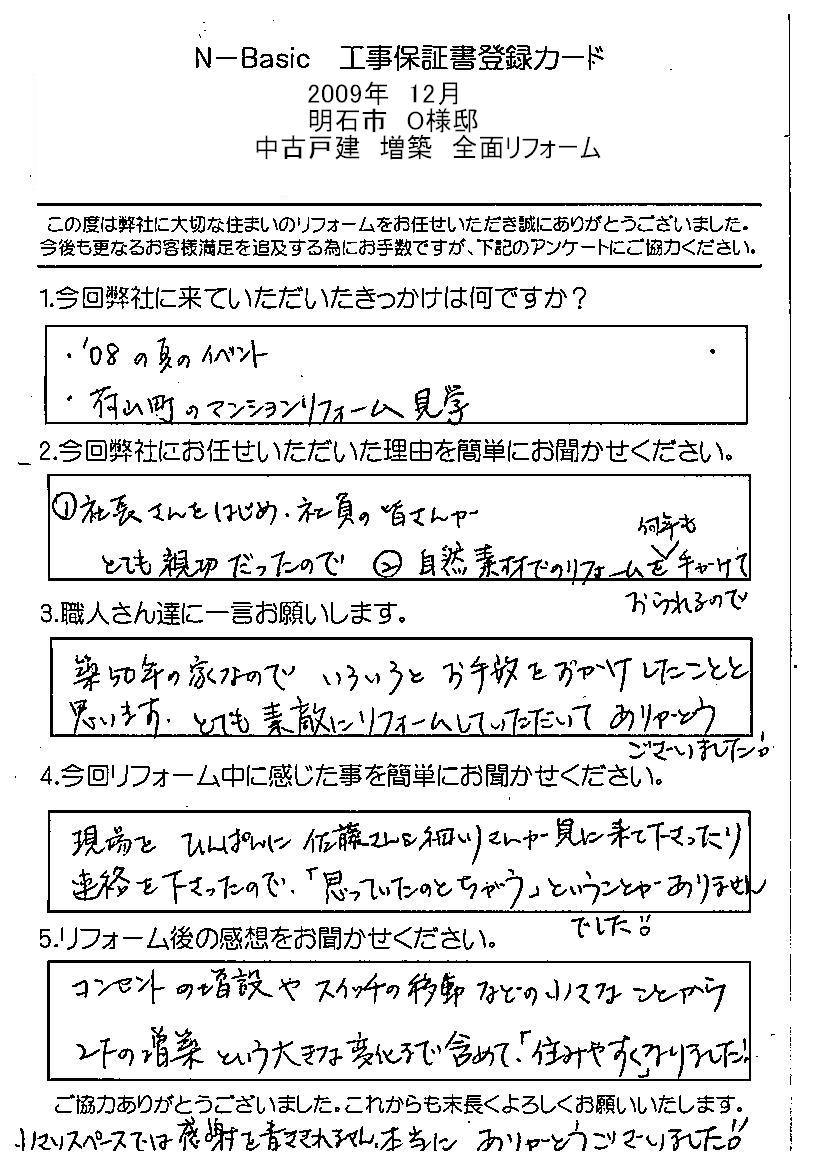 N－Basic　工事保証書登録カード
2009年　12月
明石市　O様邸
中古戸建　増築　全面リフォーム
この度は弊社に大切な住まいのリフォームをお任せいただき誠にありがとうございました。
今後も更なるお客様満足を追及する為にお手数ですが、下記のアンケートにご協力ください。
1.今回弊社に来ていただいたきっかけは何ですか？
・'08の夏のイベント
・荷山町のマンションリフォーム見学
2.今回弊社にお任せいただいた理由を簡単にお聞かせください。
①社長さんをはじめ、社員の皆さんが
何年も
とても親切だったので ②自然素材でのリフォームを手がけて
おられるので
3.職人さん達に一言お願いします。
築50年の家なので いろいろと お手数をおかけしたことと
思います。とても素敵にリフォームしていただいて ありがとう
ございました!!
4.今回リフォーム中に感じた事を簡単にお聞かせください。
現場を ひんぱんに 佐藤さんと細川さんが見に来て下さったり
連絡を下さったので、「思っていたのとちがう」ということがありません
でした!!
5.リフォーム後の感想をお聞かせください。
コンセントの増設や スイッチの移動 などの小さな ことから
2Fの増築 という大きな変化まで含めて、「住みやすく」なりました!
ご協力ありがとうございました。これからも末長くよろしくお願いいたします。
小さいスペースでは感謝を書ききれません。本当に ありがとうございました!!